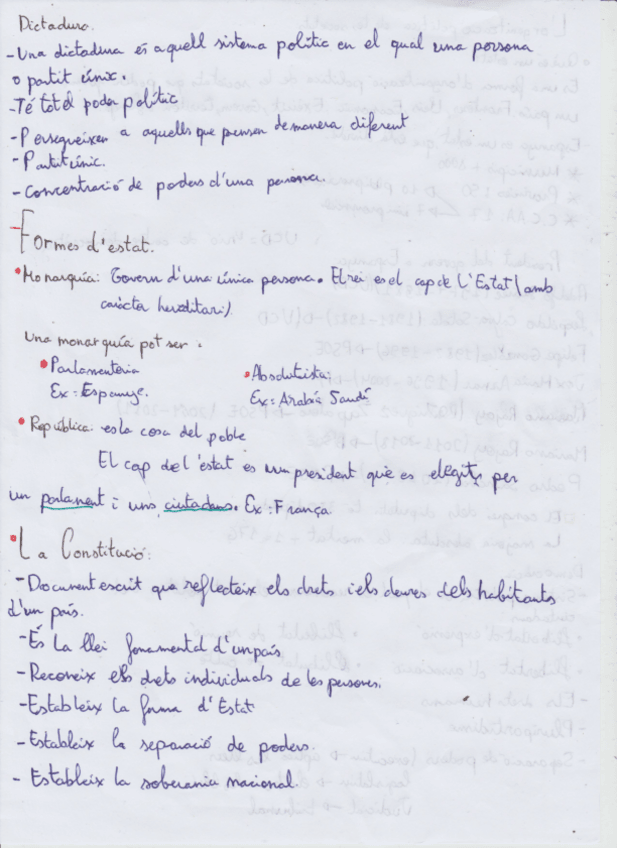 Dictadura.
-Una dictadura és aquell sistema polític en el qual una persona
o partit únic.
-Té tot el poder polític
-Persegueixen a aquells que pensen de manera diferent
-Partit únic.
-Concentració de poders d'una persona.
-Formes d'estat.
•Monarquía: Govern d'una única persona. El rei es el cap de L'Estat (amb
caràcter hereditari)
Una monarquía pot ser:
•Parlamentaria •Absolutista:
Ex: Espanya. Ex: Arabia Saudí
•República: es la cosa del poble
El cap de l'estat es un president que es elegit, per
un parlament i uns ciutadans. Ex: França
•La Constitució:
-Document escrit que reflecteix els drets i els deures dels habitants
d'un país.
-És la llei fonamental d'un país
-Reconeix els drets individuals de les persones.
-Estableix la forma d'Estat
-Estableix la separació de poders.
- Estableix la soberania nacional.